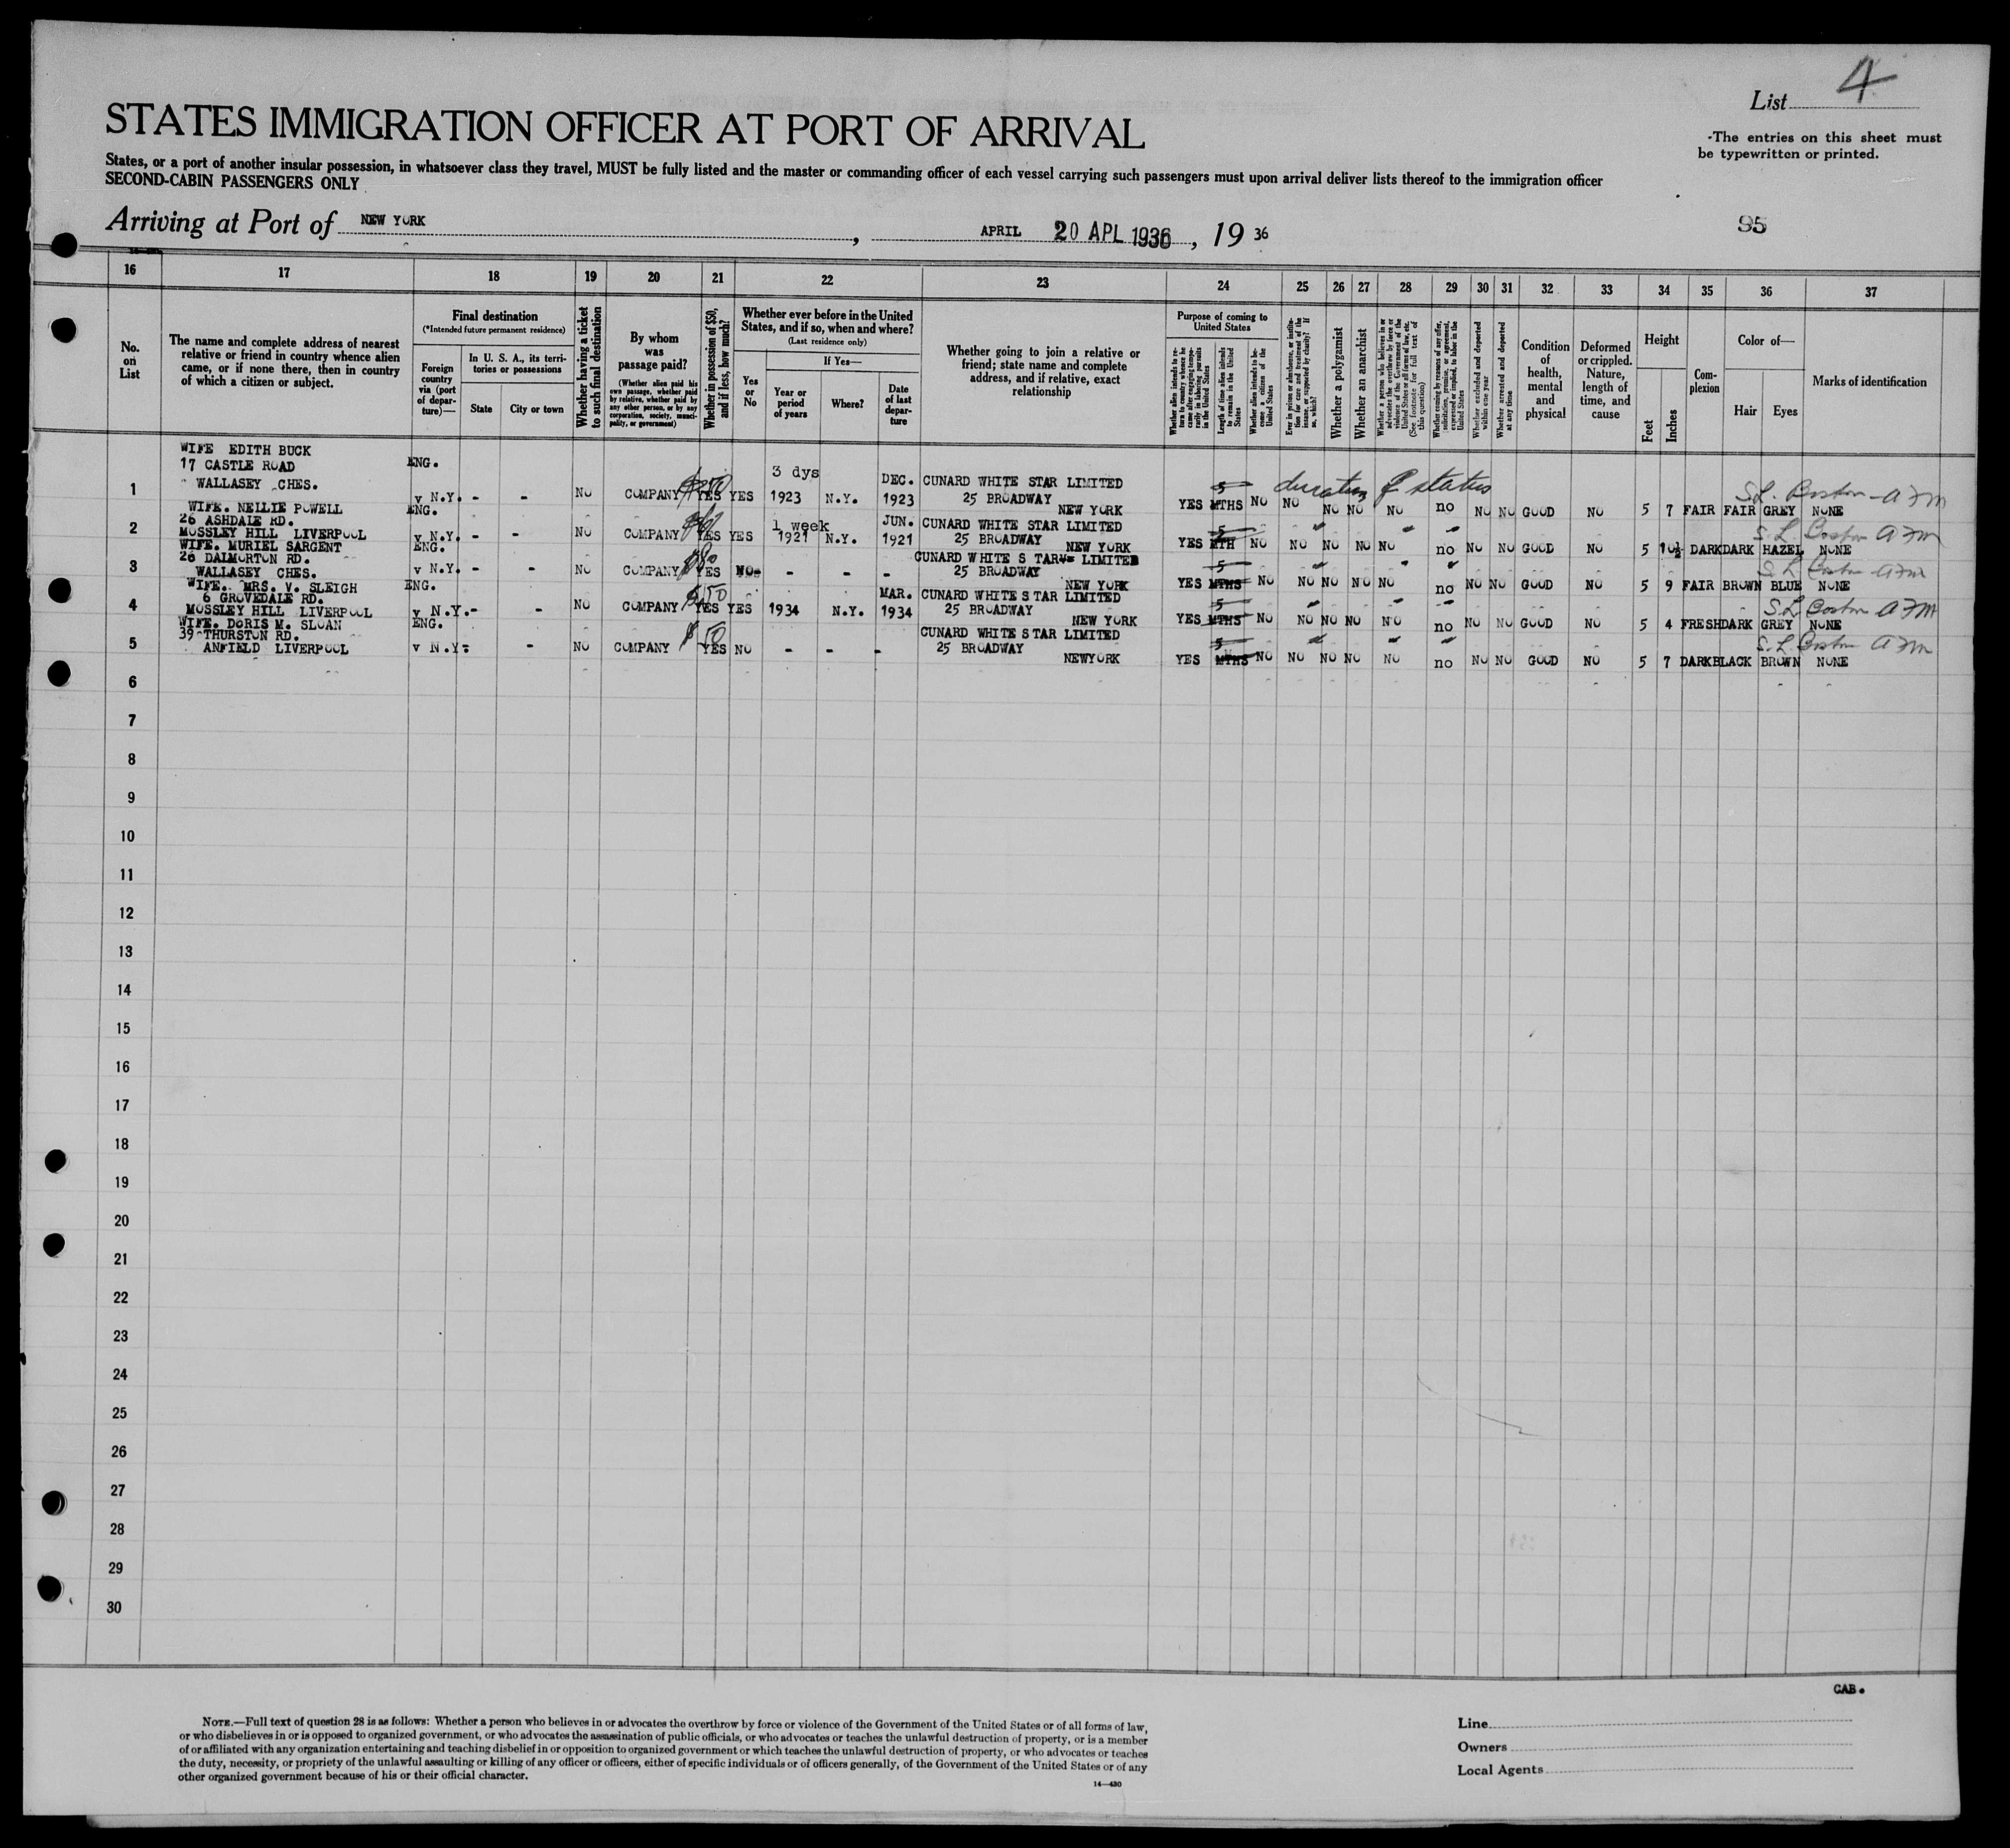 List 4
STATES IMMIGRATION OFFICER AT PORT OF ARRIVAL
-The entries on this sheet must
be typewritten or printed.
States, or a port of another insular possession, in whatsoever class they travel, MUST be fully listed and the master or commanding officer of each vessel carrying such passengers must upon arrival deliver lists thereof to the immigration officer
SECOND-CABIN PASSENGERS ONLY
Arriving at Port of NEW YORK, APRIL 20 APL 1936, 19 36
95
16 17 18 19 20 21 22 23 24 25 26 27 28 29 30 31 32 33 34 35 36 37
No. on List
The name and complete address of nearest
relative or friend in country whence alien
came, or if none there, then in country
of which a citizen or subject.
Final destination
(*Intended future permanent residence)
Foreign country via (port of departure)—
In U. S. A., its territories or possessions
State
City or town
Whether having a ticket to such final destination
By whom was passage paid?
(Whether alien paid his own passage, whether paid by relative, whether paid by any other person, or by any corporation, society, municipality, or government)
Whether in possession of $50, and if less, how much?
Whether ever before in the United States, and if so, when and where?
(Last residence only)
Yes or No
If Yes—
Year or period of years
Where?
Date of last departure
Whether going to join a relative or
friend; state name and complete
address, and if relative, exact
relationship
Purpose of coming to United States
Whether alien intends to return to country whence he came after engaging temporarily in laboring pursuits in the United States
Length of time alien intends to remain in the United States
Whether alien intends to become a citizen of the United States
Ever in prison or almshouse, or institution for care and treatment of the insane, or supported by charity? If so, which?
Whether a polygamist
Whether an anarchist
Whether a person who believes in or advocates the overthrow by force or violence of the Government of the United States or all forms of law, etc. (See footnote for full text of this question)
Whether coming by reasons of any offer, solicitation, promise, or agreement, expressed or implied, to labor in the United States
Whether excluded and deported within one year
Whether arrested and deported at any time
Condition of health, mental and physical
Deformed or crippled. Nature, length of time, and cause
Height
Feet
Inches
Complexion
Color of—
Hair
Eyes
Marks of identification
duration of status
1 WIFE EDITH BUCK
17 CASTLE ROAD ENG. 3 dys S.L. Boston - AFM
WALLASEY CHES. v N.Y. - - NO COMPANY $50 YES YES 1923 N.Y. DEC. 1923 CUNARD WHITE STAR LIMITED
25 BROADWAY
NEW YORK YES 5 MTHS NO NO NO NO NO no NO NO GOOD NO 5 7 FAIR FAIR GREY NONE
2 WIFE. NELLIE POWELL ENG.
26 ASHDALE RD. 1 week S.L. Boston AFM
MOSSLEY HILL LIVERPOOL v N.Y. - - NO COMPANY YES YES 1921 N.Y. JUN. 1921 CUNARD WHITE STAR LIMITED
25 BROADWAY
NEW YORK YES 5 MTH NO NO NO NO NO no NO NO GOOD NO 5 10½ DARK DARK HAZEL NONE
3 WIFE. MURIEL SARGENT ENG.
26 DALMORTON RD. S.L. Boston AFM
WALLASEY CHES. v N.Y. - - NO COMPANY YES NO- - - - CUNARD WHITE S TAR LIMITED
25 BROADWAY
NEW YORK YES 5 MTHS NO NO NO NO NO no NO NO GOOD NO 5 9 FAIR BROWN BLUE NONE
4 WIFE. MRS. V. SLEIGH ENG.
6 GROVEDALE RD. S.L. Boston AFM
MOSSLEY HILL LIVERPOOL v N.Y.- - NO COMPANY $50 YES YES 1934 N.Y. MAR. 1934 CUNARD WHITE S TAR LIMITED
25 BROADWAY
NEW YORK YES 5 MTHS NO NO NO NO NO no NO NO GOOD NO 5 4 FRESH DARK GREY NONE
5 WIFE. DORIS M. SLOAN ENG.
39 THURSTON RD. S.L. Boston AFM
ANFIELD LIVERPOOL v N.Y. - NO COMPANY $50 YES NO - - - CUNARD WHITE S TAR LIMITED
25 BROADWAY
NEWYORK YES 5 MTHS NO NO NO NO NO no NO NO GOOD NO 5 7 DARK BLACK BROWN NONE
6
7
8
9
10
11
12
13
14
15
16
17
18
19
20
21
22
23
24
25
26
27
28
29
30
CAB.
NOTE.—Full text of question 28 is as follows: Whether a person who believes in or advocates the overthrow by force or violence of the Government of the United States or of all forms of law,
or who disbelieves in or is opposed to organized government, or who advocates the assassination of public officials, or who advocates or teaches the unlawful destruction of property, or is a member
of or affiliated with any organization entertaining and teaching disbelief in or opposition to organized government or which teaches the unlawful destruction of property, or who advocates or teaches
the duty, necessity, or propriety of the unlawful assaulting or killing of any officer or officers, either of specific individuals or of officers generally, of the Government of the United States or of any
other organized government because of his or their official character.
14—430
Line
Owners
Local Agents